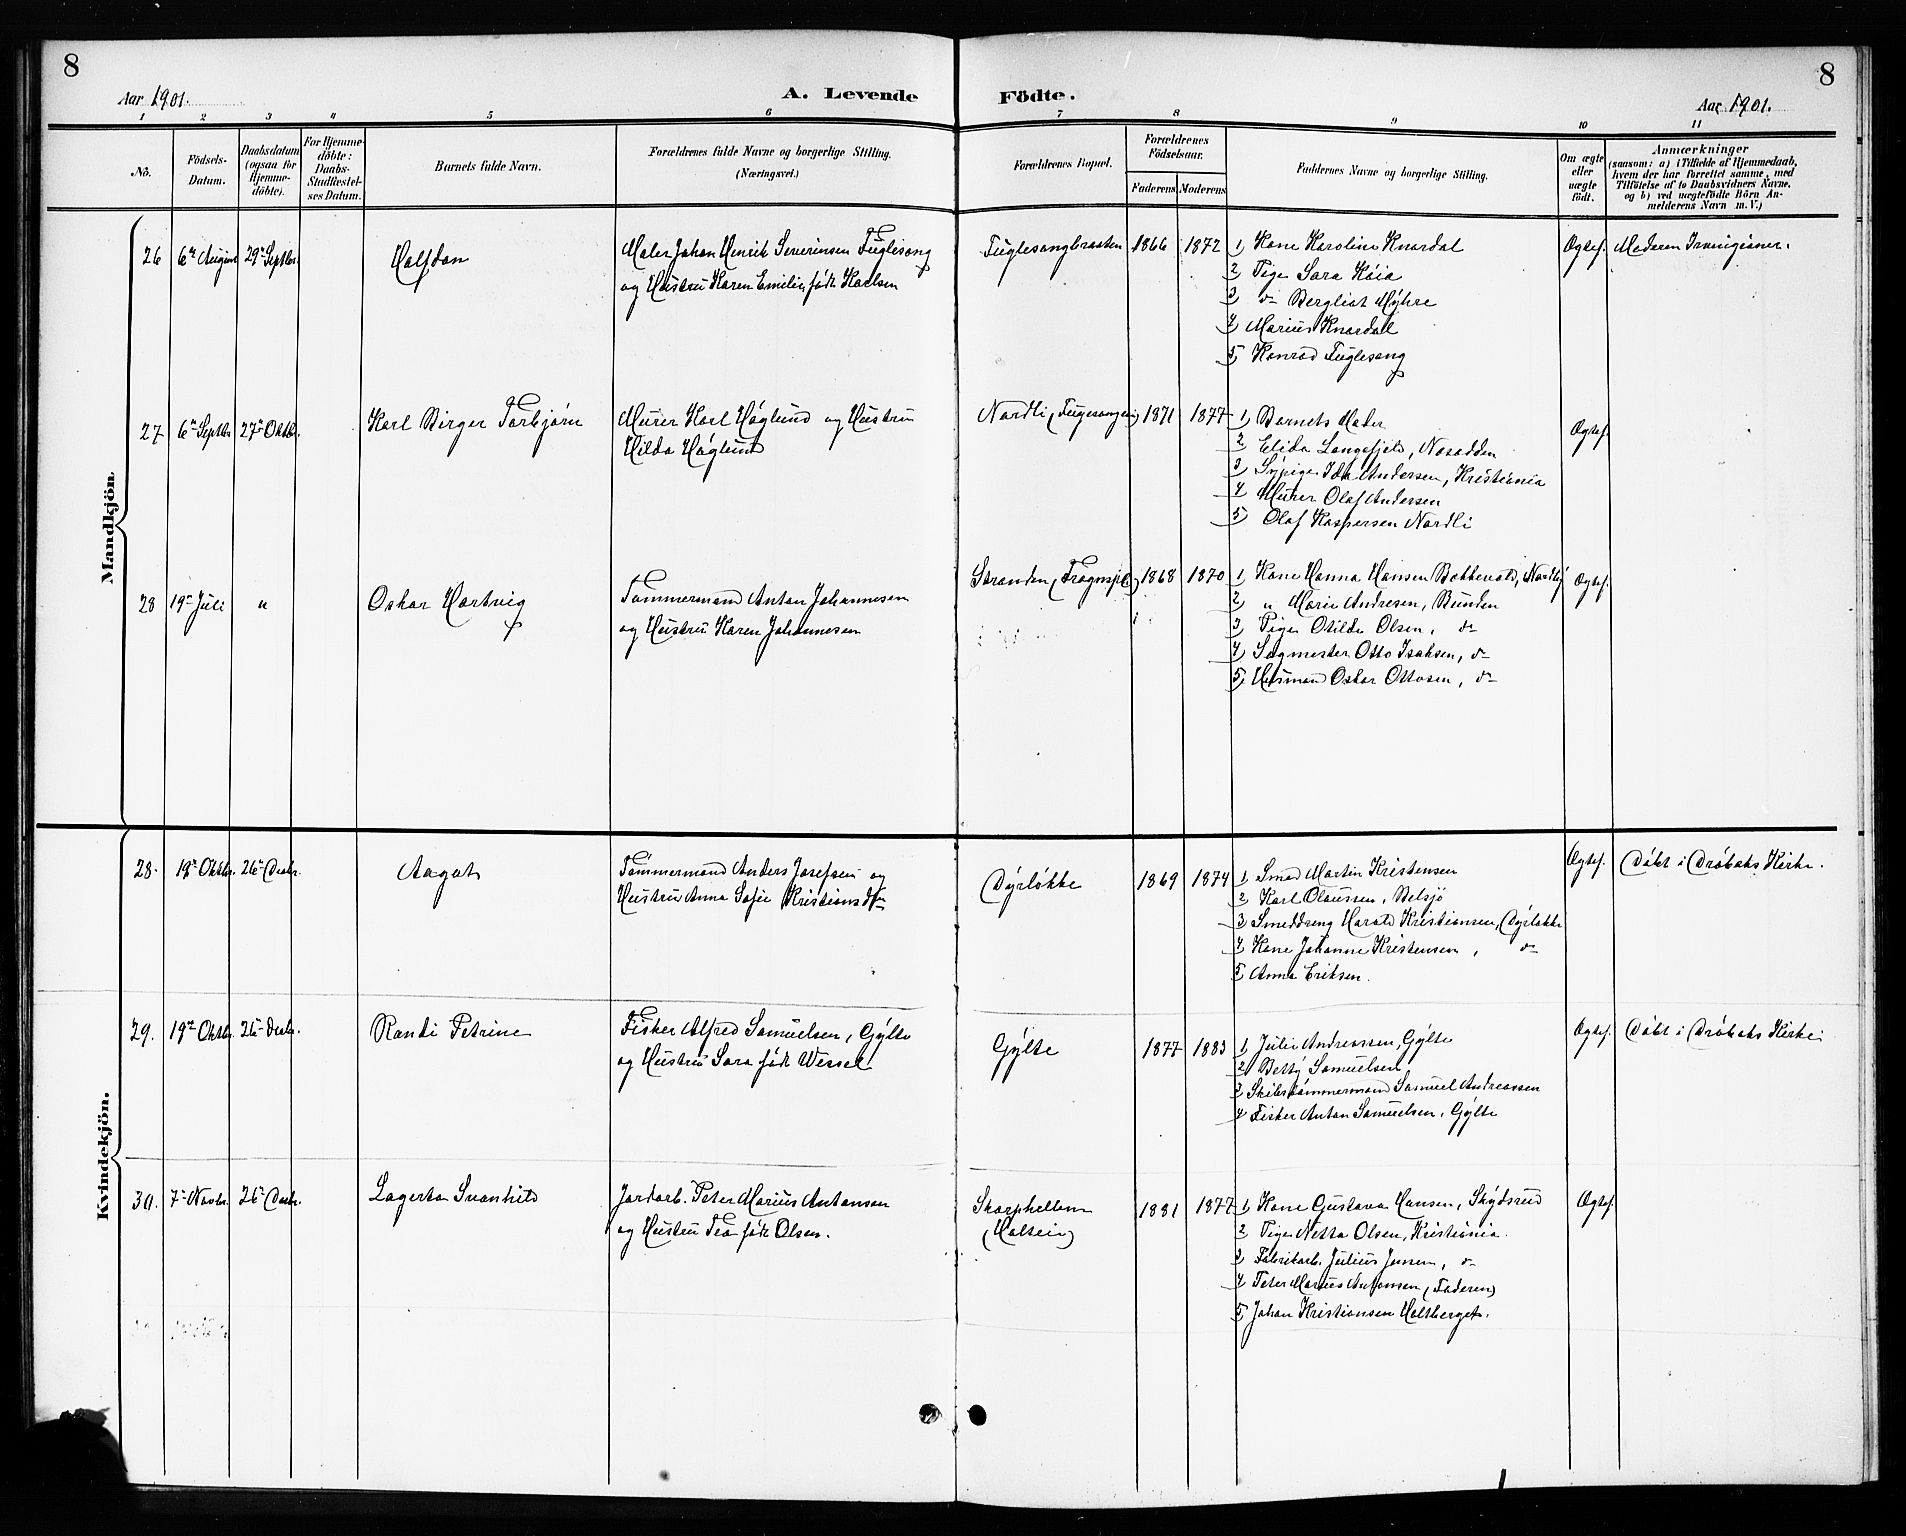 8
Aar 1901.
A. Levende
Födte.
Aar 1901.
8
1 2 3 4 5 6 7 8 9 10 11
No.
Födsels-
Datum.
Daabsdatum
(ogsaa for
Hjemme-
döbte).
For Hjemme-
döbte:
Daabs-
Stadfæstel-
ses Datum.
Barnets fulde Navn.
Forældrenes fulde Navne og borgerlige Stilling.
(Næringsvei.)
Forældrenes Bopæl.
Forældrenes
Födselsaar.
Faderens
Moderens
Faddernes Navne og borgerlige Stilling.
Om ægte
eller
uægte
födt.
Anmærkninger
(saasom: a) i Tilfælde af Hjemmedaab,
hvem der har forrettet samme, med
Tilföielse af to Daabsvidners Navne,
og b) ved uægtefödte Börn An-
melderens Navn m. V.)
Mandkjön.
26 6te August 29de Septbr. Halfdan
Maler Johan Henrik Severinsen Fuglesang
og Hustru Karen Emilie født Karlsen
Fuglesangbraaten 1866 1872
1) Kone Karoline Knardal
2) Pige Sara Kóia
3) do Bergliot Mÿhre
4) Marius Knardal
5) Konrad Fuglesang
Ægtef. Moderen Irvingianer.
27 6te Septbr 27de Oktbr. Karl Birger Torbjørn
Murer Karl Høglund og Hustru
Hilda Høglund
Nordli (Fuglesangen) 1871 1877
1) Barnets Moder
2) Elida Langefjeld, Næsodden
3) Sÿpige Ida Andersen, Kristiania
4) Murer Olaf Andersen
5) Olaf Kaspersen Nordli
Ægtef.
28 19de Juli " Oskar Hartvig
Tømmermand Anton Johannesen
og Hustru Karen Johannesen
Stranden (Frognspl.) 1868 1870
1) Kone Hanna Hansen Bekkevold, Nordby
2) " Marie Andresen, Bunden
3) Pige Otilde Olsen, do
4) Sagmester Otto Isaksen, do
5) Husmand Oskar Ottosen, do
Ægtef.
Kvindekjön.
28. 19de Oktbr. 26de Decbr. Aagot
Tømmermand Anders Josefsen og
Hustru Anna Sofie Kristiansdtr
Dÿrløkke 1869 1874
1) Smed Martin Kristensen
2) Karl Olaussen, Belsjø
3) Smeddreng Harald Kristiansen, Dÿrløkke
4) Kone Johanne Kristensen, do
5) Anna Eriksen.
Ægtef. Døbt i Drøbaks Kirke.
29. 19de Oktbr. 26de Decbr. Randi Petrine
Fisker Alfred Samuelsen, Gÿlte
og Hustru Sara født Wessel
Gÿlte 1877 1883
1) Julie Andreassen, Gÿlte
2) Betty Samuelsen
3) Skibstømmermand Samuel Andreassen
4) Fisker Anton Samuelsen, Gÿlte
Ægtef. Døbt i Drøbaks Kirke.
30. 7de Novbr. 26de Decbr. Lagerta Svanhild
Jordarb. Peter Marius Antonsen
og Hustru Tea født Olsen.
Skorphellom
(Halsein) 1881 1877
1) Kone Gustava Hansen, Skÿdsrud
2) Pige Netta Olsen, Kristiania.
3) Fabrikarb. Julius Jensen, do
4) Peter Marius Antonsen (Faderen)
5) Johan Kristiansen Holtberget.
Ægtef.